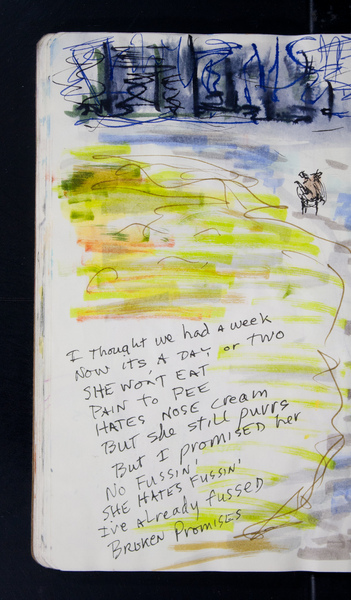 I thought we had a week
Now its, A DAY, or TWO
SHE WON'T EAT
PAIN to PEE
HATES NOSE CREAM
BUT She still purrs
But I promISED her
NO FUSSIN'
SHE HATES FUSSIN'
I've Already fussed
BROKEN PROMISES